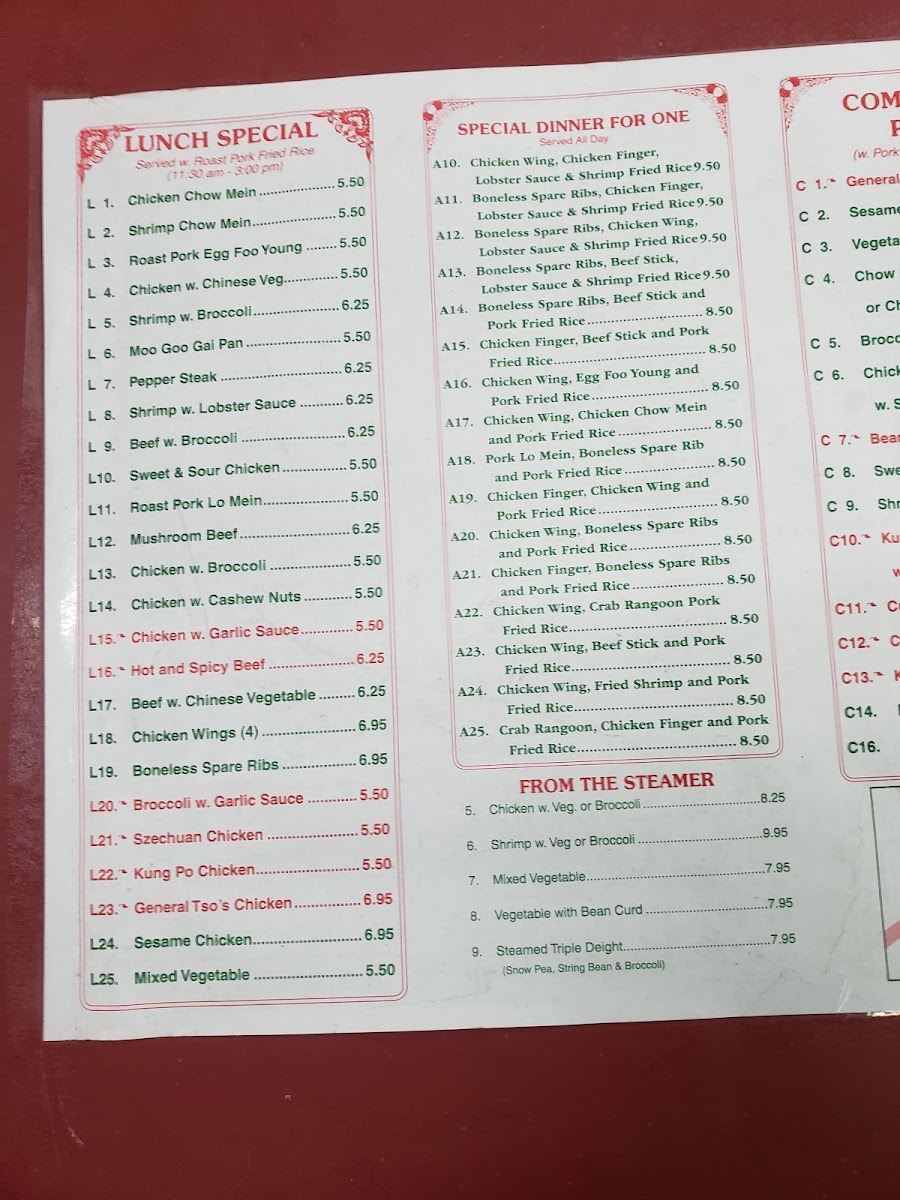 LUNCH SPECIAL
Served w. Roast Pork Fried Rice
(11:30 am - 3:00 pm)
L 1. Chicken Chow Mein ................... 5.50
L 2. Shrimp Chow Mein..................... 5.50
L 3. Roast Pork Egg Foo Young ........ 5.50
L 4. Chicken w. Chinese Veg............. 5.50
L 5. Shrimp w. Broccoli...................... 6.25
L 6. Moo Goo Gai Pan ........................ 5.50
L 7. Pepper Steak ............................... 6.25
L 8. Shrimp w. Lobster Sauce ........... 6.25
L 9. Beef w. Broccoli .......................... 6.25
L10. Sweet & Sour Chicken ................ 5.50
L11. Roast Pork Lo Mein...................... 5.50
L12. Mushroom Beef............................ 6.25
L13. Chicken w. Broccoli .................... 5.50
L14. Chicken w. Cashew Nuts ............ 5.50
L15. Chicken w. Garlic Sauce............. 5.50
L16. Hot and Spicy Beef ..................... 6.25
L17. Beef w. Chinese Vegetable ......... 6.25
L18. Chicken Wings (4) ....................... 6.95
L19. Boneless Spare Ribs ................... 6.95
L20. Broccoli w. Garlic Sauce ............ 5.50
L21. Szechuan Chicken ....................... 5.50
L22. Kung Po Chicken.......................... 5.50
L23. General Tso's Chicken ................ 6.95
L24. Sesame Chicken........................... 6.95
L25. Mixed Vegetable ........................... 5.50
SPECIAL DINNER FOR ONE
Served All Day
A10. Chicken Wing, Chicken Finger,
Lobster Sauce & Shrimp Fried Rice 9.50
A11. Boneless Spare Ribs, Chicken Finger,
Lobster Sauce & Shrimp Fried Rice 9.50
A12. Boneless Spare Ribs, Chicken Wing,
Lobster Sauce & Shrimp Fried Rice 9.50
A13. Boneless Spare Ribs, Beef Stick,
Lobster Sauce & Shrimp Fried Rice 9.50
A14. Boneless Spare Ribs, Beef Stick and
Pork Fried Rice............................ 8.50
A15. Chicken Finger, Beef Stick and Pork
Fried Rice..................................... 8.50
A16. Chicken Wing, Egg Foo Young and
Pork Fried Rice............................ 8.50
A17. Chicken Wing, Chicken Chow Mein
and Pork Fried Rice ...................... 8.50
A18. Pork Lo Mein, Boneless Spare Rib
and Pork Fried Rice ...................... 8.50
A19. Chicken Finger, Chicken Wing and
Pork Fried Rice............................ 8.50
A20. Chicken Wing, Boneless Spare Ribs
and Pork Fried Rice ...................... 8.50
A21. Chicken Finger, Boneless Spare Ribs
and Pork Fried Rice ...................... 8.50
A22. Chicken Wing, Crab Rangoon Pork
Fried Rice..................................... 8.50
A23. Chicken Wing, Beef Stick and Pork
Fried Rice..................................... 8.50
A24. Chicken Wing, Fried Shrimp and Pork
Fried Rice..................................... 8.50
A25. Crab Rangoon, Chicken Finger and Pork
Fried Rice..................................... 8.50
FROM THE STEAMER
5. Chicken w. Veg. or Broccoli .............................. 8.25
6. Shrimp w. Veg or Broccoli ................................ 9.95
7. Mixed Vegetable.............................................. 7.95
8. Vegetable with Bean Curd ................................ 7.95
9. Steamed Triple Deight...................................... 7.95
(Snow Pea, String Bean & Broccoli)
COM
(w. Pork
C 1. General
C 2. Sesame
C 3. Vegeta
C 4. Chow
or Ch
C 5. Brocc
C 6. Chick
w. S
C 7. Bean
C 8. Swe
C 9. Shr
C10. Ku
w
C11.
C12. C
C13.
C14.
C16.